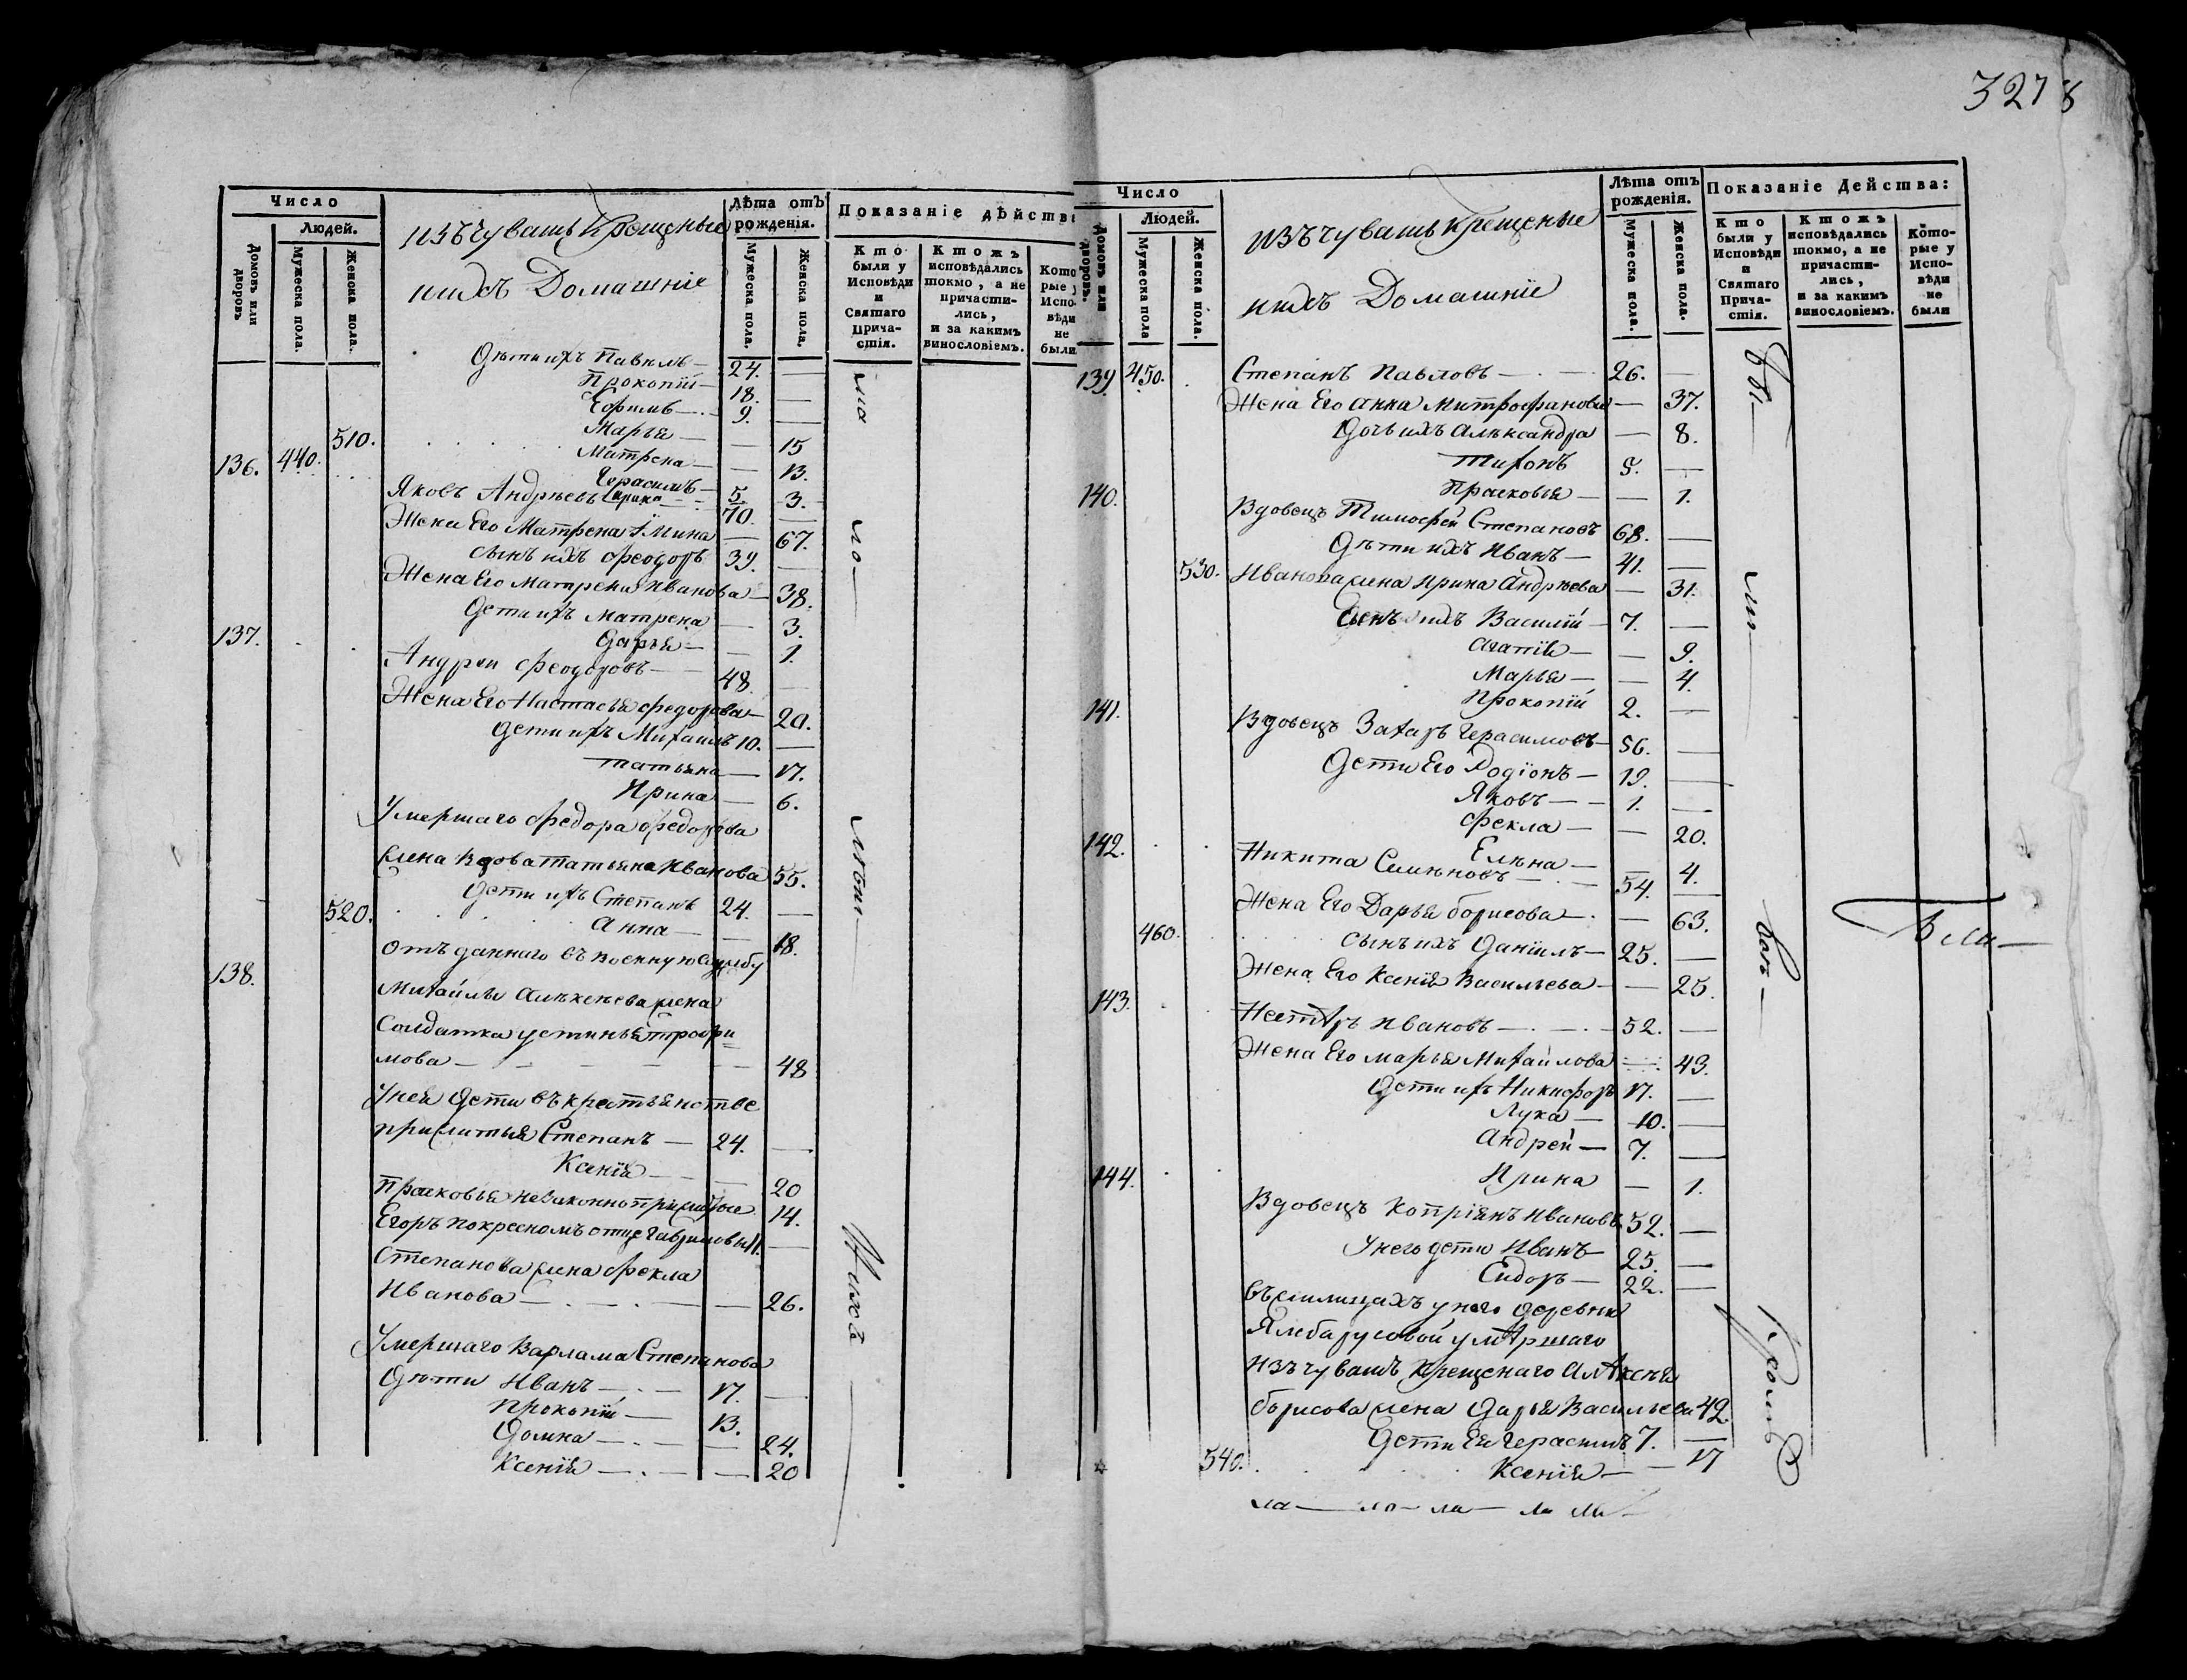 3278
Число
Людей.
Домовъ или дворовъ
Мужеска пола.
Женска пола.
изъ чувашъ Крещеные
и ихъ Домашніе
Лѣта отъ рожденія.
Мужеска пола.
Женска пола.
Показаніе дѣйств
Кто были у Исповѣди и Святаго Прича-стія.
Ктожъ исповѣдались токмо, а не причасти-лись, и за какимъ винословіемъ.
Кото рые Испо- вѣди не были
Дѣти ихъ Павилъ — 24. —
Прокопій — 18. —
Ефимъ — 9. —
510. Марья — — 15
136. 440. Матрена — — 13.
Герасимъ — 5.
Ирина 3.
Яковъ Андрѣевъ 70. —
Жена Его Матрена — 67.
сынъ ихъ Феодоръ 39. —
Жена Его Матрена Иванова — 38.
Дети ихъ Матрена — 3.
137. Дарья — — 1.
Андрей Феодоровъ — 48 —
Жена Его Настасья Федорова — 20.
Дети ихъ Михаилъ 10. —
Татьяна — 17.
Ирина — 6.
Умершаго Федора Федорова
жена вдова Татьяна Иванова 55.
Дети ихъ Степанъ 24. —
520. Анна — — 18.
Отъданнаго въ военную службу
138. Михайлы Алѣксѣева жена
Солдатка Устинья Трофи
мова — — 48
У нея Дети въ крестьянстве
прижитыя Степанъ — 24. —
Ксенія — — 20
Прасковья незаконноприжитые 14.
Егоръ по кресномъ отце Гавриловъ 11. —
Степанова жена Фекла
Иванова — — 26.
Умершаго Варлама Степанова
Дѣти Иванъ — 17. —
Прокопій — 13.
Домна — — 24.
Ксенія — — 20
Число
Людей.
Домовъ или дворовъ.
Мужеска пола
Женска пола.
изъ чувашъ Крещеные
и ихъ Домашніе
Лѣта отъ рожденія.
Мужеска пола.
Женска пола.
Показаніе Действа:
Кто были у Исповѣди и Святаго Прича-стія.
Ктожъ исповѣдались токмо, а не причасти-лись, и за какимъ винословіемъ.
Кото-рые у Испо-вѣди не были
139. 450. Степанъ Павловъ — 26. —
Жена Его Анна Митрофанова — 37.
Дочь ихъ Алѣксандра — 8.
Тихонъ 5. —
Прасковья — — 1.
140. Вдовецъ Тимофей Степановъ 68. —
Дѣти ихъ Иванъ — 41. —
530. Иванова жена Ирина Андрѣева — 31.
Сынъ ихъ Василій — 7. —
Агапія — — 9.
Марья — — 4.
Прокопій 2. —
141. Вдовецъ Захаръ Герасимовъ — 56. —
Дети Его Родіонъ — 19. —
Яковъ — 1. —
Фекла — — 20.
Елѣна — — 4.
142. Никита Семѣновъ — 54. —
Жена Его Дарья Борисова — — 63.
460. сынъ ихъ Даніилъ — 25. —
Жена Его Ксенія Васильева — — 25.
143. Несторъ Ивановъ — 52. —
Жена Его Марья Михайлова — 43.
Дети ихъ Никифоръ 17. —
Лука — 10. —
Андрей — 7. —
Ирина — 1.
144. Вдовецъ Копріянъ Ивановъ 52. —
У него дети Иванъ — 25. —
Сидоръ — 22. —
въ жилищахъ у него деревни
умершаго
изъ чувашъ Крещенаго Алексѣя
Борисова жена Дарья Васильева 42.
Дети Ея Герасимъ 7. —
540. Ксенія — — 17